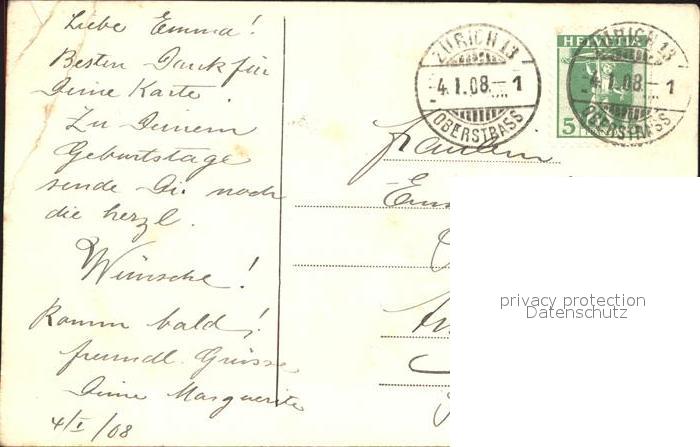 Liebe Emma!
Besten Dank für
Deine Karte.
Zu Deinem
Geburtstage
sende Dir noch
die herzl.
Wünsche!
Komm bald!
freundl. Grüsse
Deine Marguerite
4/I/08
ZÜRICH 13
4.I.08.–1
OBERSTRASS
HELVETIA
5
ZÜRICH 13
4.I.08.–1
OBERSTRASS
Fräulein
privacy protection
Datenschutz